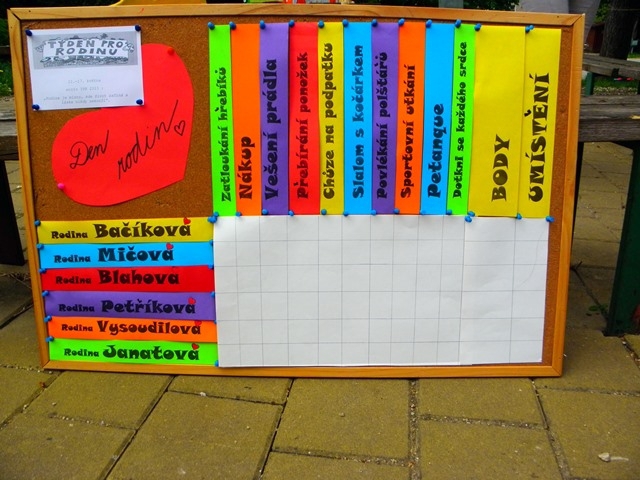 TÝDEN PRO
RODINU
Den
rodin
Zatloukání hřebíků
Nákup
Vešení prádla
Přebírání ponožek
Chůze na podpatku
Slalom s kočárkem
Povlékání polštářů
Sportovní utkání
Petanque
Dotkni se každého srdce
BODY
UMÍSTĚNÍ
Rodina Bačíková
Rodina Mičová
Rodina Blahova
Rodina Petříková
Rodina Vysoudilová
Rodina Janatová